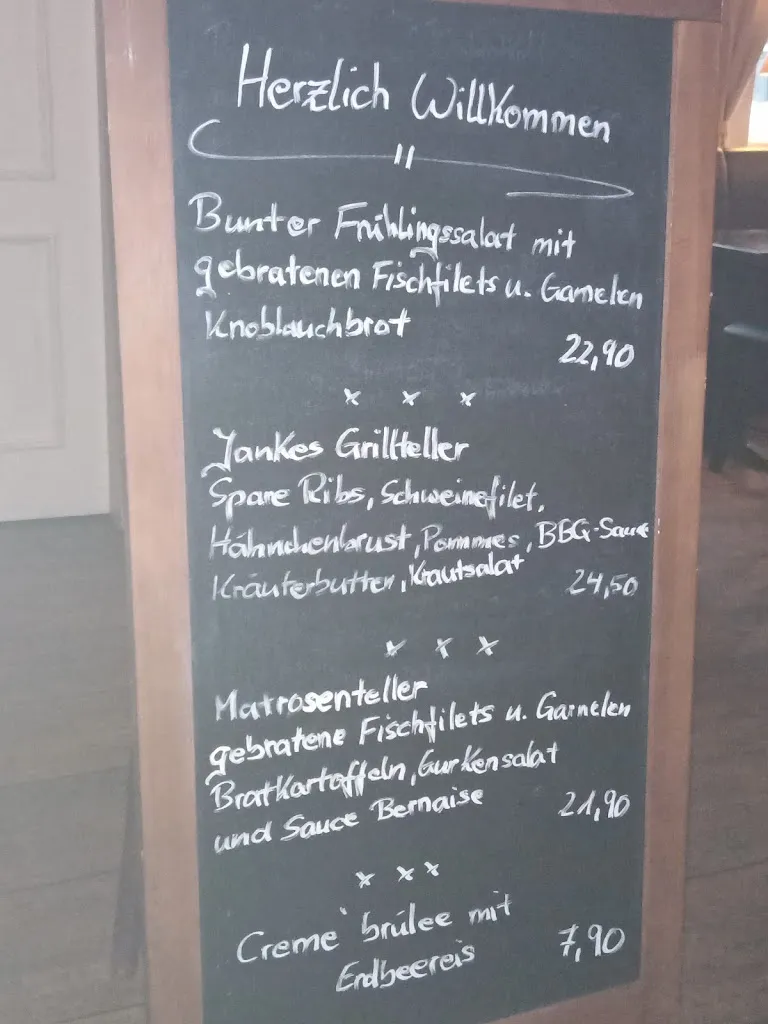 Herzlich Willkommen
Bunter Frühlingssalat mit
gebratenen Fischfilets u. Garnelen
Knoblauchbrot
22,90
x x x
Jankes Grillteller
Spare Ribs, Schweinefilet,
Hähnchenbrust, Pommes, BBQ-Sauce
Kräuterbutter, Krautsalat 24,50
x x x
Matrosenteller
gebratene Fischfilets u. Garnelen
Bratkartoffeln, Gurkensalat
und Sauce Bernaise 21,90
x x x
Creme` brúlee mit
Erdbeereis 7,90